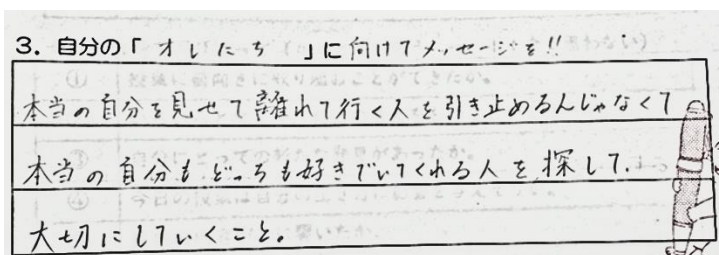 3. 自分の「オレたち」に向けてメッセージを!!
本当の自分を見せて離れて行く人を引き止めるんじゃなくて
本当の自分もどっちも好きでいてくれる人を探して.
大切にしていくこと。